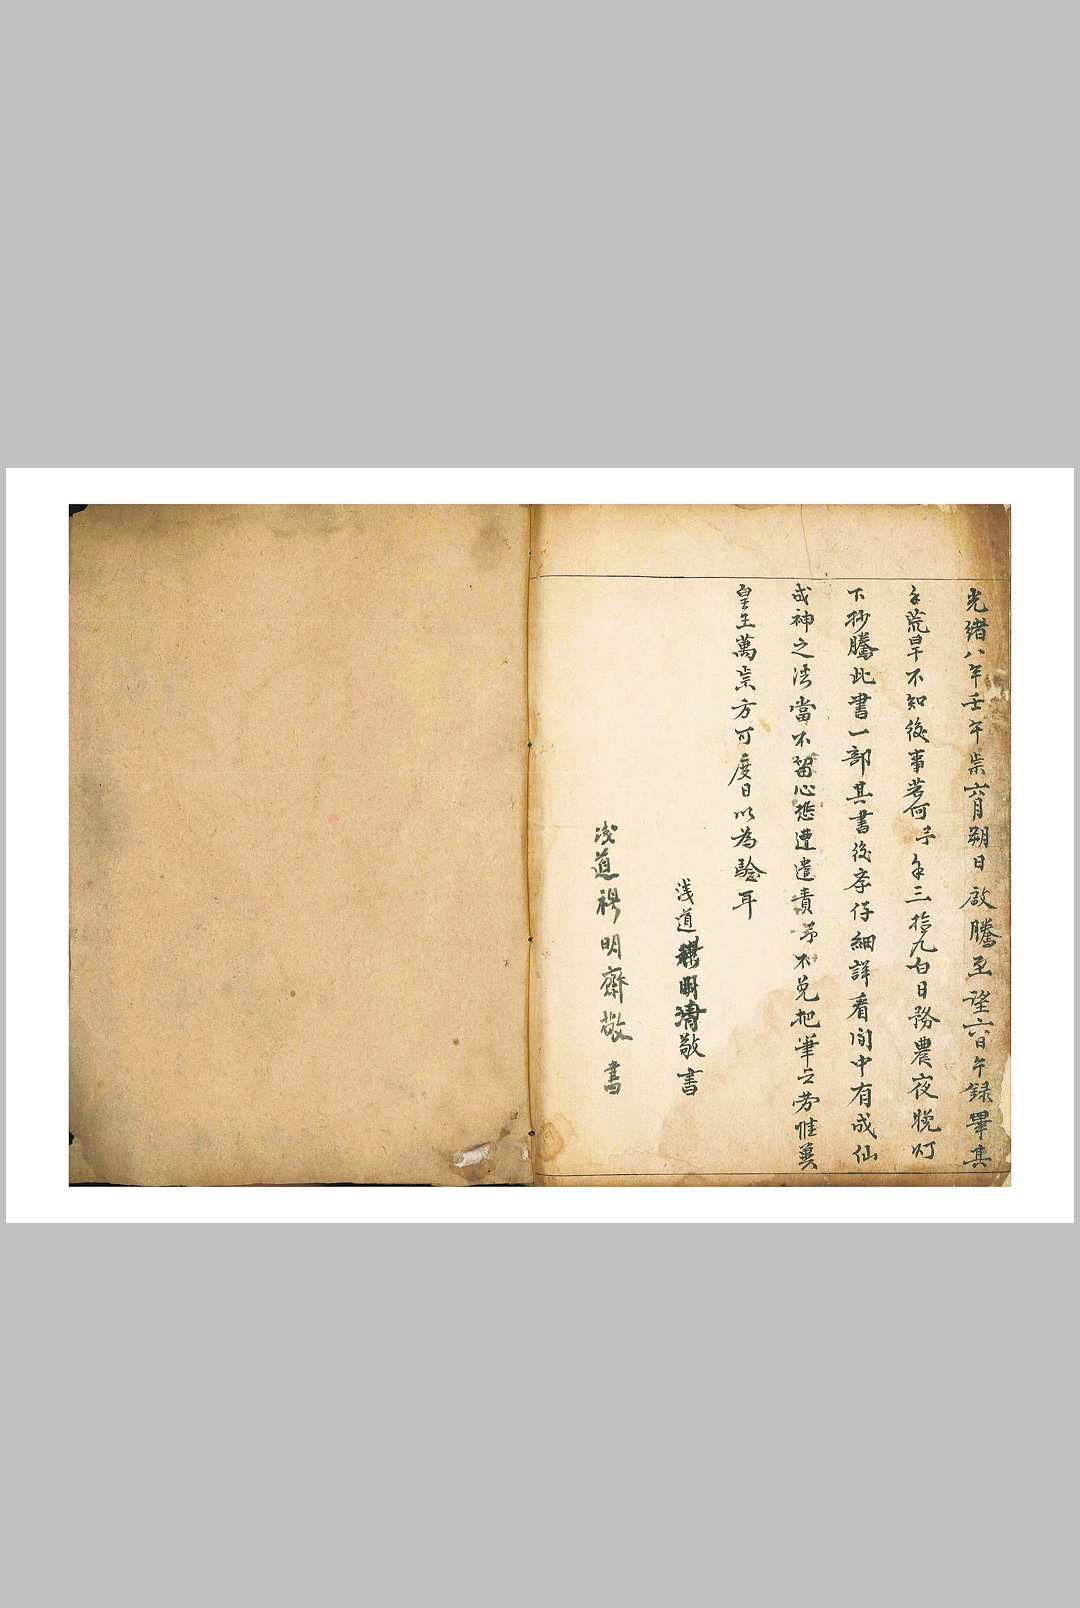 光緒八年壬午崇六月朔日啟騰至望六日午録畢其
年荒旱不知後事若何予年三拾九白日務農夜晚灯
下抄騰此書一部其書後孝仔細詳看內中有成仙
成神之法當不留心恐遭遣責弟不免把筆之劳惟冀
皇王萬崇方可度日以為驗耳
浅道 明 敬書
浅道 明齋敬書